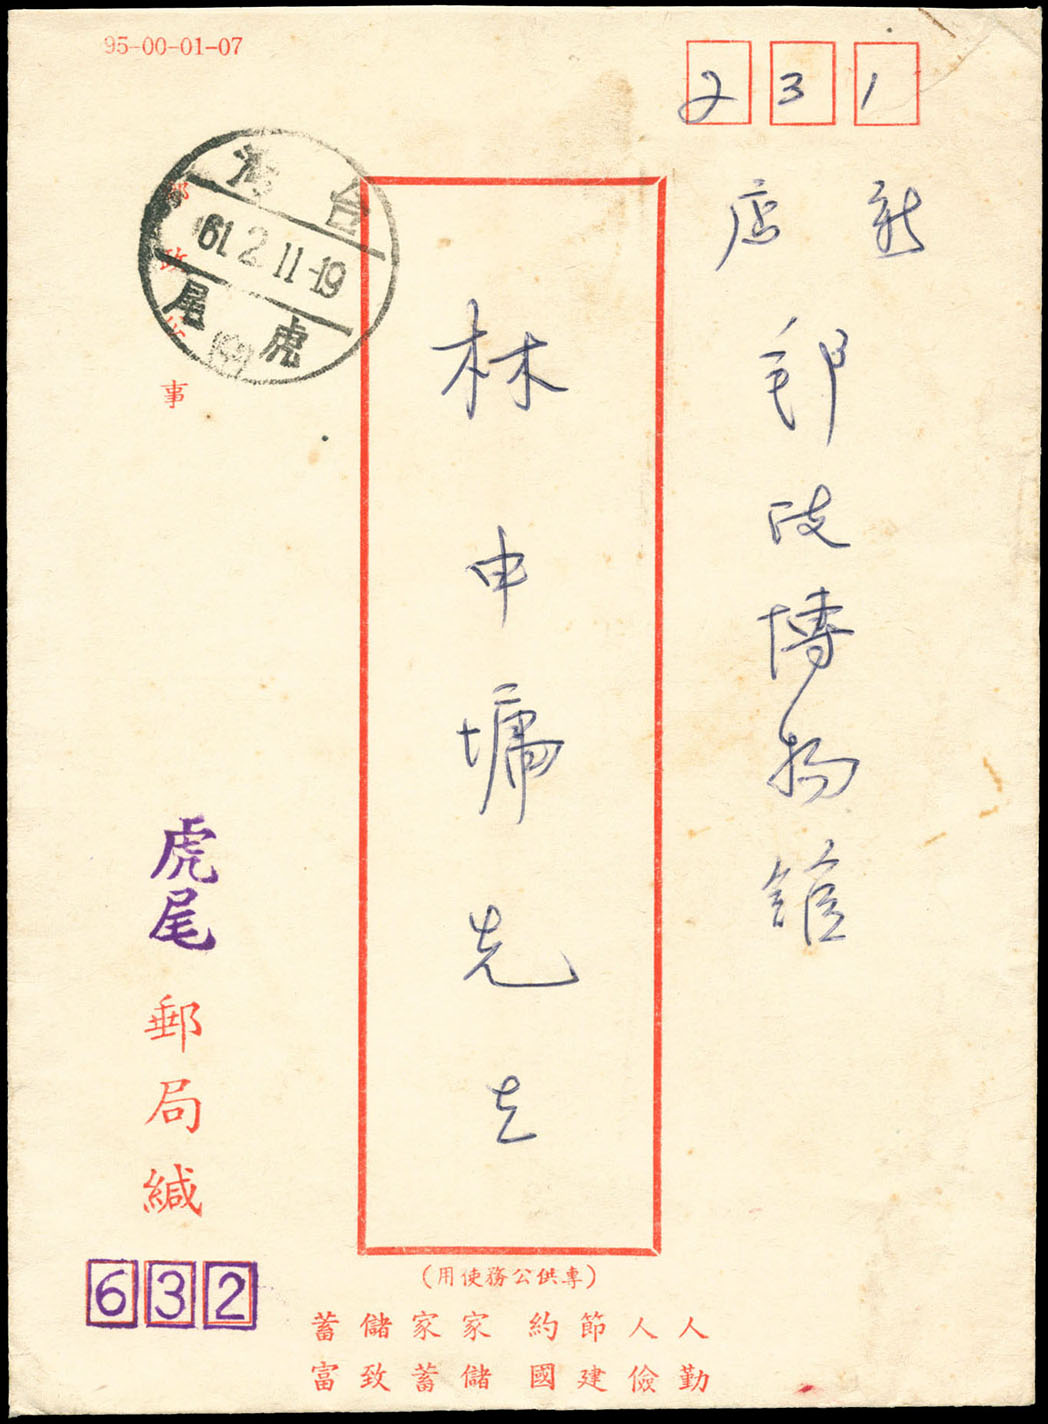 95-00-01-07
231
新店
郵政博物館
林申墉先生
郵政公事
台灣
61.2.11-19
虎尾
虎尾郵局緘
632
(專供公務使用)
人人節約 家家儲蓄
勤儉建國 儲蓄致富